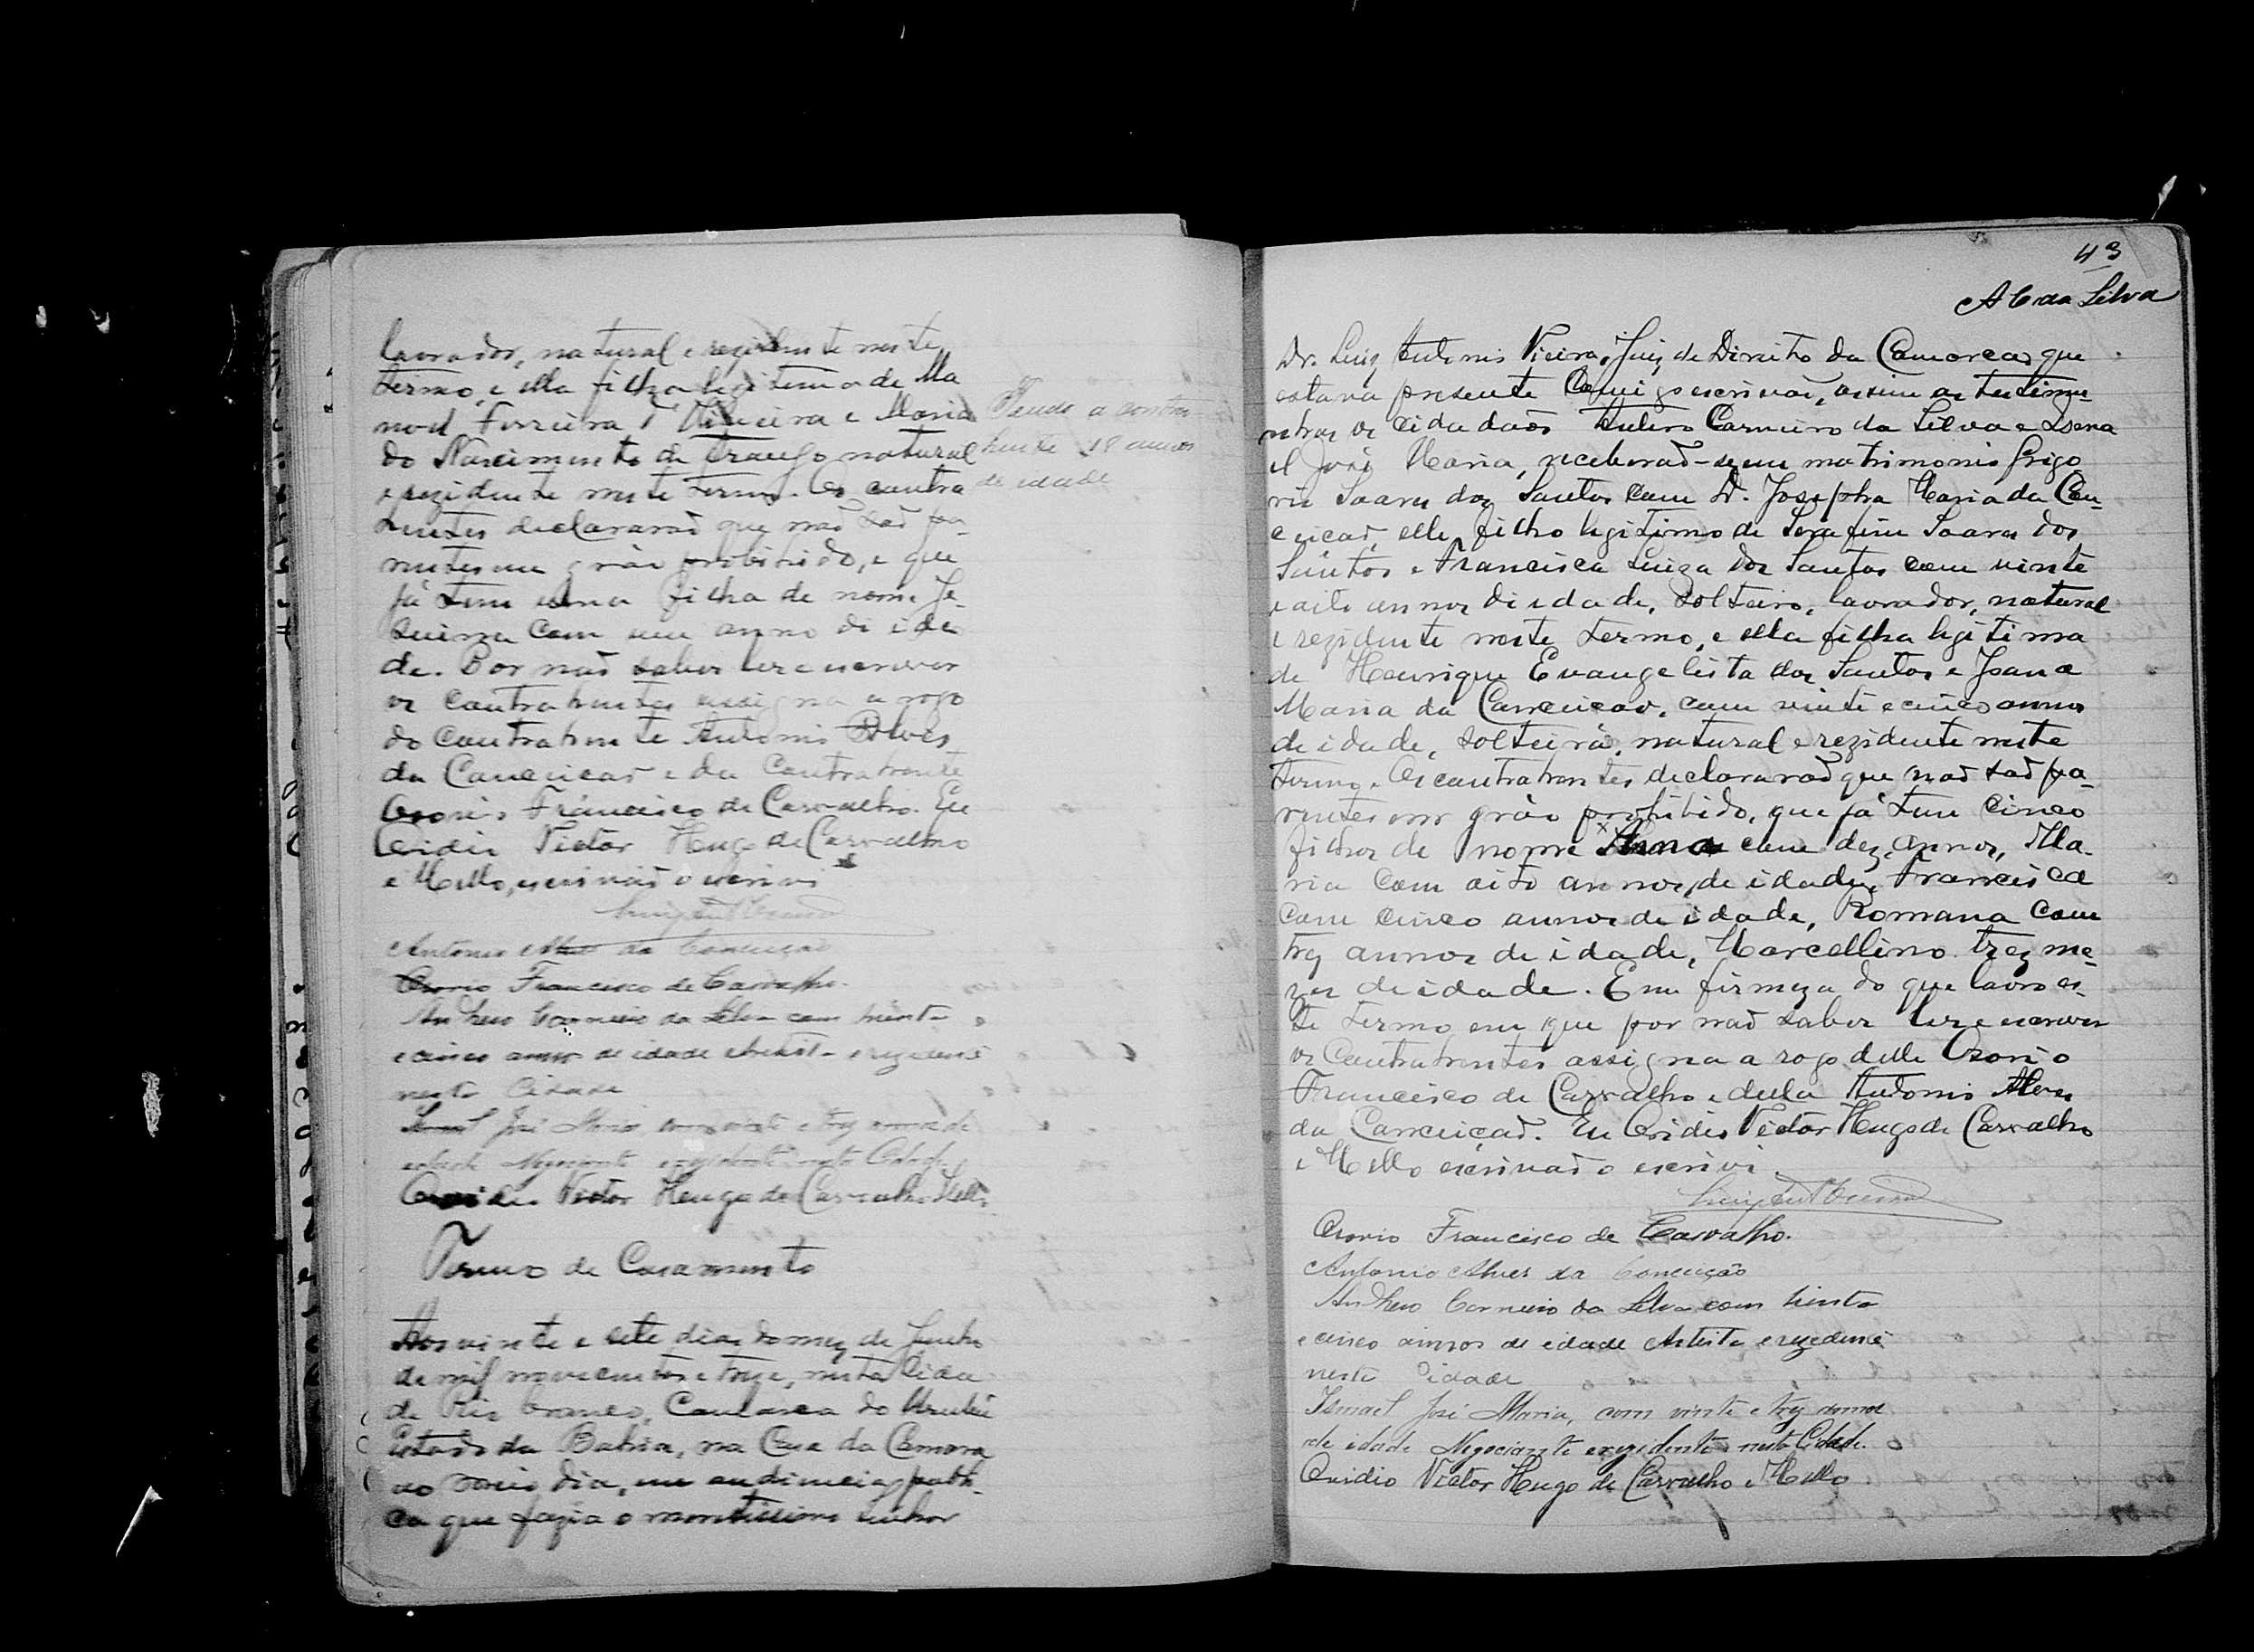 lavrador, natural e rezidente neste
termo, e ella filha legitima de Ma
noel Ferreira d' Oliveira e Maria
do Nascimento de Araujo natural
e rezidente neste termo. Os contra
hentes declararaõ que naõ saõ pa-
rentes em gráo prohibido, e que
já tem uma filha de nome Je-
suina com um anno de ida
de. Por naõ saber ler e escrever
os contrahentes assigna a rogo
do contrahente Antonio Alves
da Conceicaõ e da contrahente
Ozorio Francisco de Carvalho. Eu
Ovidio Victor Hugo de Carvalho
e Mello, escrivaõ o escrevi
Antonio Alves da Conceição
Ozorio Francisco de Carvalho.
Anthero Carneiro da Silva com trinta
e cinco annos de idade Artista e rezidente
nesta Cidade
Ismael José Maria, com vinte e trez annos de
idade Negociante e rezidente nesta Cidade
Ovidio Victor Hugo de Carvalho e Mello
Tendo a contra
hente 18 annos
de idade
Termo de Casamento
Aos vinte e sete dias do mez de Junho
de mil novecentos e treze, nesta Cida
de Rio branco, Comarca do Urubú
Estado da Bahia, na Casa da Camara
ao meio dia, em audiencia publi-
ca que fazia o meretissimo Senhor
43
A C da Silva
Dr. Luiz Antonio Vieira, Juiz de Direito da Comarca, que
estava presente Comigo escrivaõ, assim as testimu-
nhas os cidadaõs Antero Carneiro da Silva e Isma
el José Maria, receberaõ-se em matrimonio Grigo
rio Soares dos Santos com D. Josepha Maria da Con-
ceicaõ, elle filho legitimo de Serafim Soares dos
Santos e Francisca Luiza dos Santos com vinte
e oito annos de idade, solteiro, lavrador, natural
e rezidente neste termo, e ella filha legitima
de Henrique Evangelista dos Santos e Joana
Maria da Conceicaõ, com vinte e cinco annos
de idade, solteira, natural e rezidente neste
termo. Os contrahentes declararaõ que naõ saõ pa-
rentes em gráo prohibido, que já tem cinco
filhos de nome Anna com dez annos, Ma-
ria com oito annos de idade, Francisca
com cinco annos de idade, Romana com
trez annos de idade, Marcellino trez me-
zes de idade. Em firmeza do que lavro es-
te termo em que por naõ saber ler e escrever
os Contrahentes assigna a rogo delle Ozorio
Francisco de Carvalho e della Antonio Alves
da Conceiçaõ. Eu Ovidio Victor Hugo de Carvalho
e Mello escrivaõ o escrivi.
Ozorio Francisco de Carvalho.
Antonio Alves da Conceição
Anthero Carneiro da Silva com trinta
e cinco annos de idade Artista e rezidente
nesta Cidade
Ismael José Maria, com vinte e trez annos
de idade Negociante e rezidente nesta Cidade.
Ovidio Victor Hugo de Carvalho e Mello